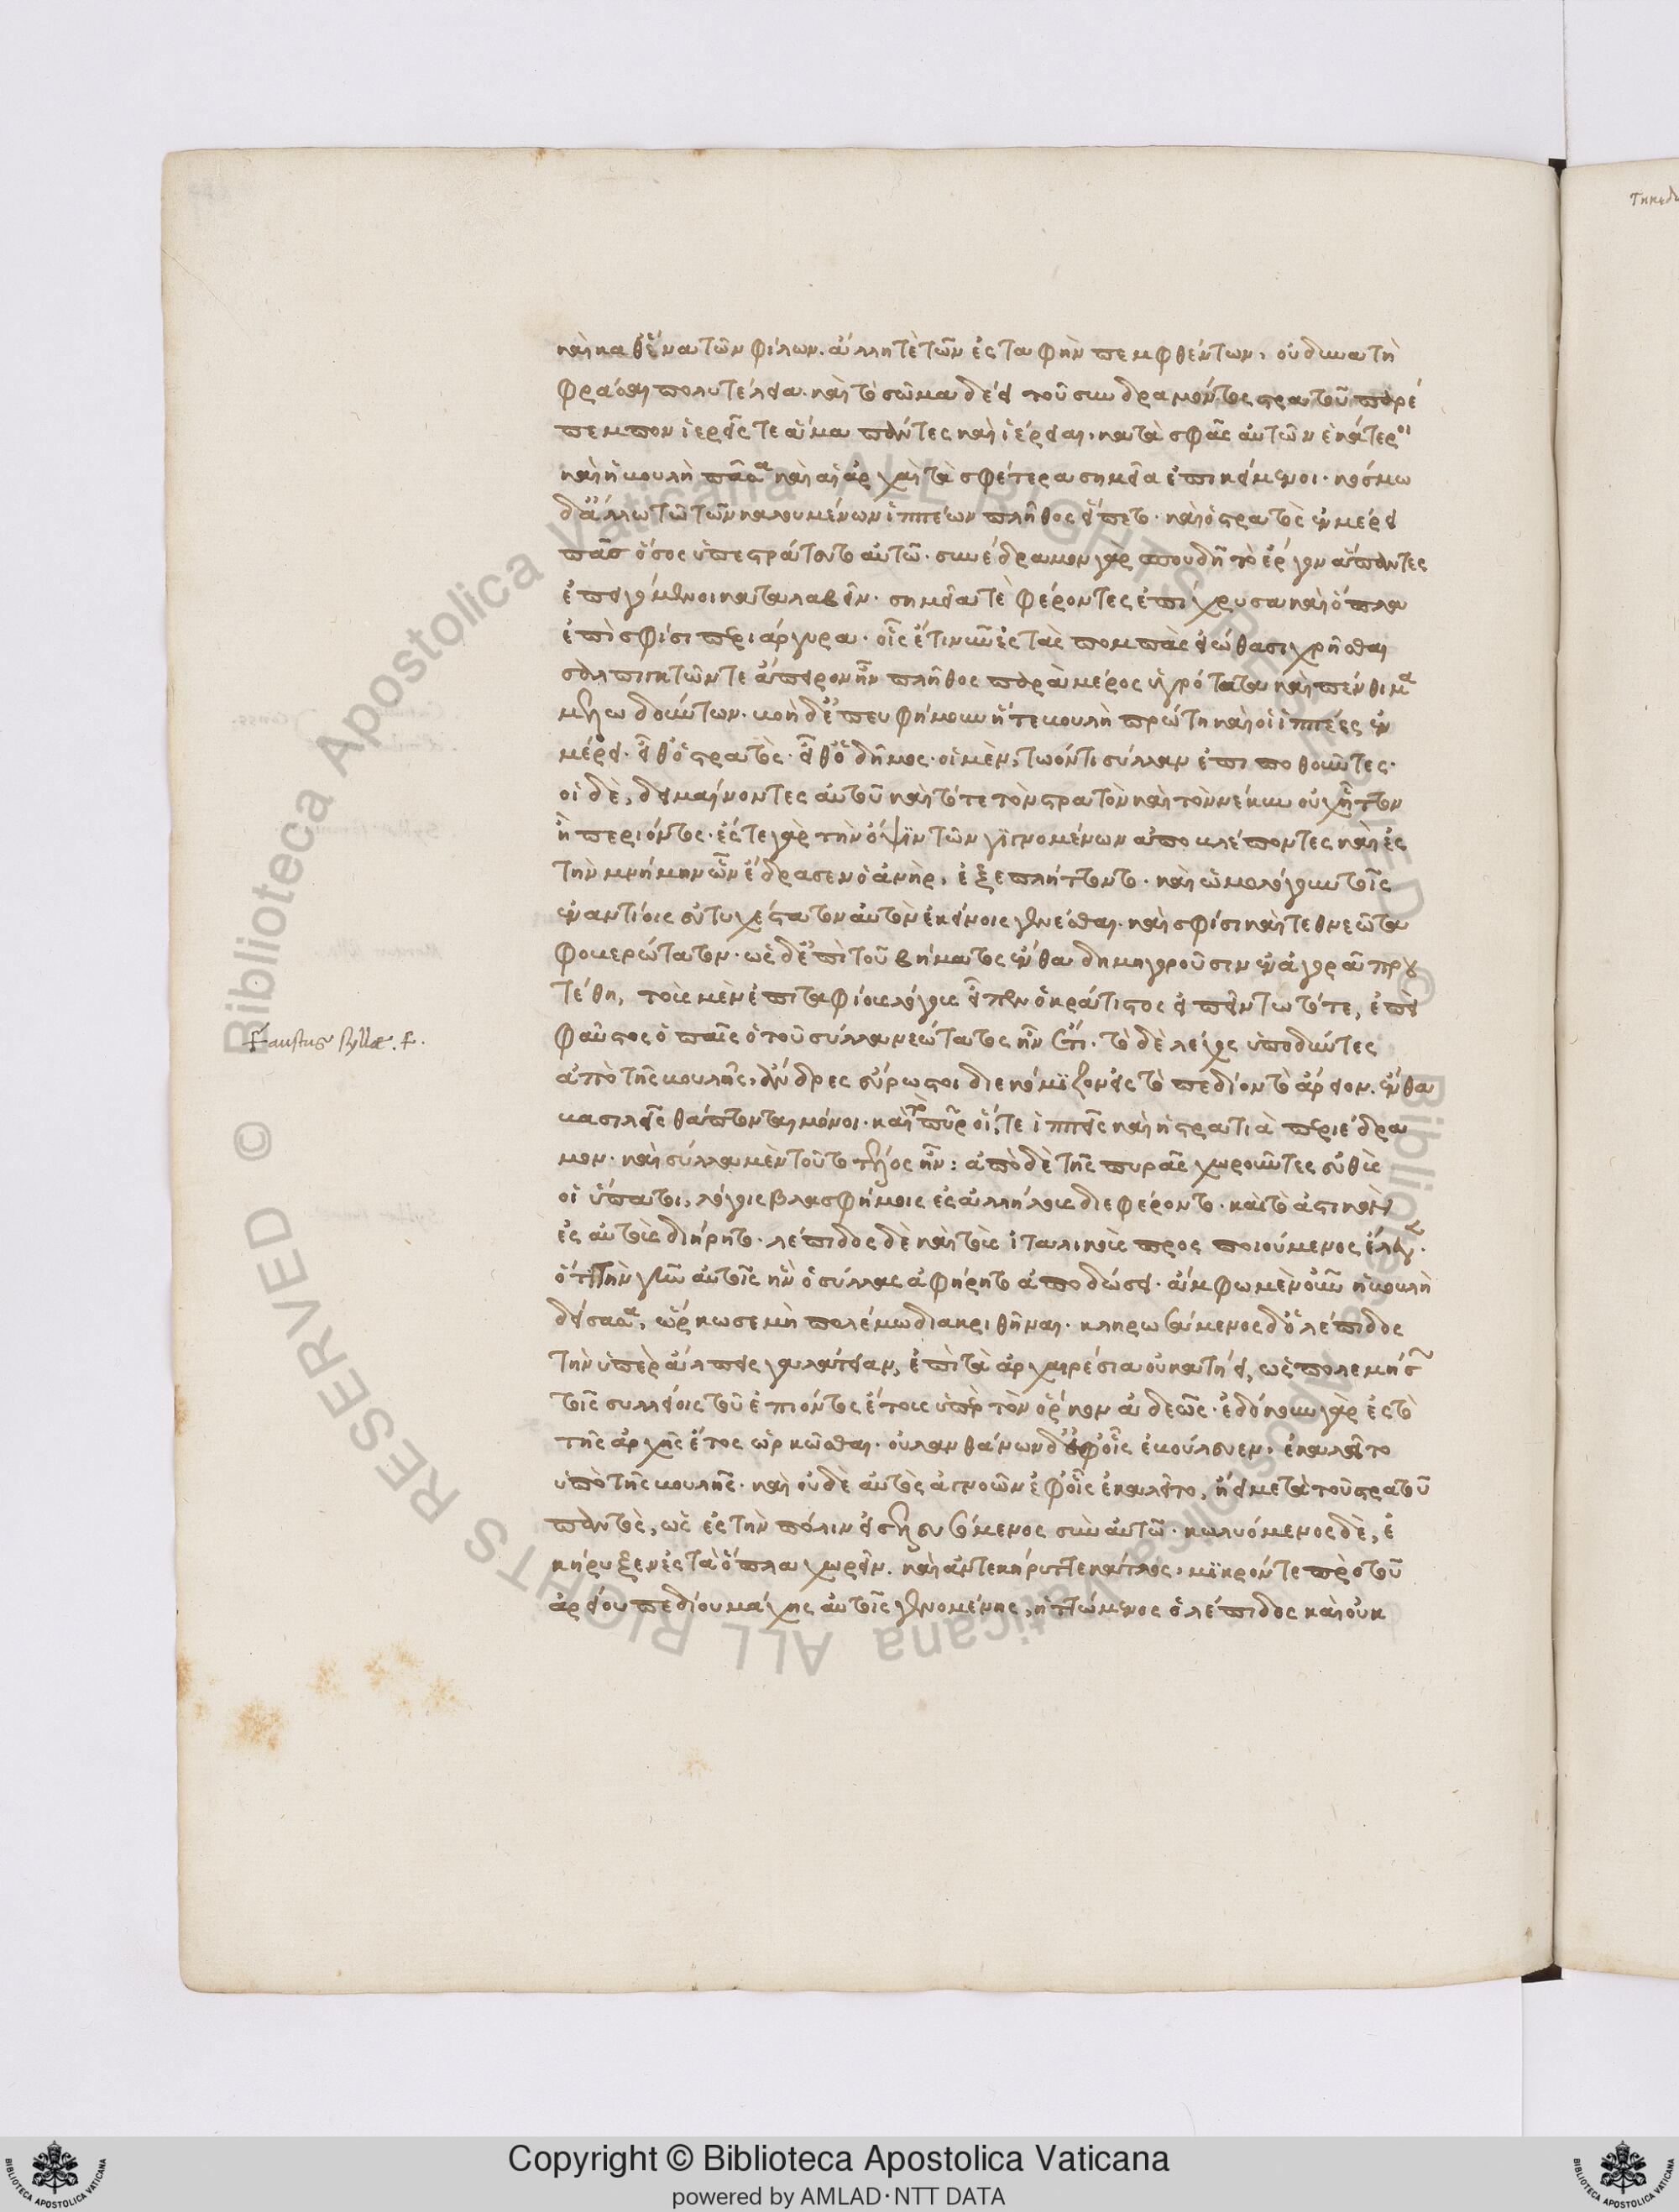 καὶ καθ' ἕνα τῶν φίλων. ἄλλη τὲ τῶν ἐς ταφὴν πεμφθέντων. οὐ δυνατὴ
φράσαι πολυτέλεια. καὶ τὸ σῶμα δέει τοῦ συνδραμόντος στρατοῦ παρέ
πεμπον ἱερεῖς τε ἅμα πάντες καὶ ἱέρειαι. κατὰ σφᾶς αὐτῶν ἑκάτεροι
καὶ ἡ βουλὴ πᾶσα καὶ αἱ ἀρχαὶ τὰ σφέτερα σημεῖα ἐπικείμενοι. κόσμω
δ' ἄλλω τῶ τῶν καλουμένων ἱππέων πλῆθος εἵπετο. καὶ ὁ στρατὸς ἐν μέρει
πᾶς ὅσος ὑπεστράτευτο αὐτῶ. συνέδραμον γὰρ σπουδῆ τὸ ἔργον ἅπαντες
ἐπειγόμενοι καταλαβεῖν. σημεῖα τὲ φέροντες ἐπίχρυσα καὶ ὅπλα
ἐπὶ σφίσι περιάργυρα. οἷς ἔτι νῦν ἐς τὰς πομπὰς εἰώθασι χρῆσθαι
σαλπικτῶν τε ἄπειρον ἦν πλῆθος παρὰ μέρος ὑγρότατα καὶ πένθιμα
μελωδούντων. βοὴ δ' ἐπευφήμουν ἥ τε βουλὴ πρώτη καὶ οἱ ἱππέες ἐν
μέρει. εἶθ' ὁ στρατὸς. εἶθ' ὁ δῆμος. οἱ μὲν, τῶ ὄντι σύλλαν ἐπιποθοῦντες.
οἱ δὲ, δειμαίνοντες αὐτοῦ καὶ τότε τὸν στρατὸν καὶ τὸν νέκυν οὐχ ἧττον
ἢ περιόντος. ἔς τε γὰρ τὴν ὄψιν τῶν γιγνομένων ἀποβλέποντες καὶ ἐς
τὴν μνήμην ὧν ἔδρασεν ὁ ἀνὴρ, ἐξεπλήττοντο. καὶ ὡμολόγουν τοῖς
ἐναντίοις εὐτυχέστατον αὐτὸν ἐκείνοις γενέσθαι. καὶ σφίσι καὶ τεθνεῶτα
φοβερώτατον. ὡς δ' ἐπὶ τοῦ βήματος ἔνθα δημηγοροῦσιν ἐν ἀγορᾶ πρου
τέθη, τοὺς μὲν ἐπιταφίους λόγους εἶπεν ὁ κράτιστος εἰπεῖν τῶ τότε, ἐπεὶ
φαῦστος ὁ παῖς ὁ τοῦ σύλλα νεώτατος ἦν ἔτι. τὸ δὲ λέχος ὑποδύντες
ἀπὸ τῆς βουλῆς, ἄνδρες εὔρωστοι διεκόμιζον ἐς τὸ πεδίον τὸ ἄρειον. ἔνθα
βασιλεῖς θάπτονται μόνοι. καὶ τὸ πῦρ οἵ, τε ἱππεῖς καὶ ἡ στρατιὰ περιέδρα
μον. καὶ σύλλα μὲν τοῦτο τέλος ἦν: ἀπὸ δὲ τῆς πυρᾶς χωροῦντες εὐθὺς
οἱ ὕπατοι, λόγοις βλασφήμοις ἐς ἀλλήλους διεφέροντο. καὶ τὸ ἀστικὸν
ἐς αὐτοὺς διήρητο. λέπιδος δὲ καὶ τοὺς ἰταλικοὺς προσποιούμενος ἔλεγεν.
ὅτι τὴν γῆν αὐτοῖς ἣν ὁ σύλλας ἀφήρητο ἀποδώσει. ἄμφω μὲν οὖν ἡ βουλὴ
δείσασα, ὥρκωσε μὴ πολέμω διακριθῆναι. κληρωσάμενος δ' ὁ λέπιδος
τὴν ὑπὲρ ἄλπεις γαλατείαν, ἐπὶ τὰ ἀρχαιρέσια οὐ κατήει, ὡς πολεμήσων
τοῖς συλλείοις τοῦ ἐπιόντος ἔτους ὑπὲρ τὸν ὅρκον ἀδεῶς. ἐδόκουν γὰρ ἐς τὸ
τῆς ἀρχῆς ἔτος ὡρκῶσθαι. οὐ λανθάνων δ' ἐφ' οἷς ἐβούλευεν, ἐκαλεῖτο
ὑπὸ τῆς βουλῆς. καὶ οὐδὲ αὐτὸς ἀγνοῶν ἐφ' οἷς ἐκαλεῖτο, ἤει μετὰ τοῦ στρατοῦ
παντὸς, ὡς ἐς τὴν πόλιν εἰσελευσόμενος σὺν αὐτῶ. κωλυόμενος δὲ, ἐ
κήρυξεν ἐς τὰ ὅπλα χωρεῖν. καὶ ἀντεκήρυττε κάτλος. μικρόν τε πρὸ τοῦ
ἀρείου πεδίου μάχης αὐτοῖς γενομένης, ἡττώμενος ὁ λέπιδος καὶ οὐκ
Faustus syllae. f.
Copyright © Biblioteca Apostolica Vaticana
powered by AMLAD·NTT DATA
© Biblioteca Apostolica Vaticana ALL RIGHTS RESERVED
© Biblioteca Apostolica Vaticana ALL RIGHTS RESERVED
BIBLIOTECA APOSTOLICA VATICANA
BIBLIOTECA APOSTOLICA VATICANA